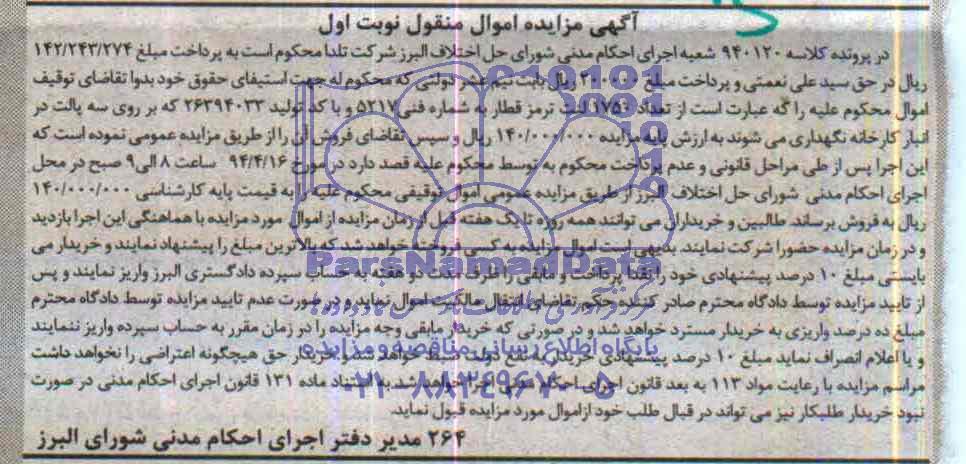 آگهی مزایده اموال منقول نوبت اول
در پرونده کلاسه ۹۴۰۱۲۰ شعبه اجرای احکام مدنی شورای حل اختلاف البرز شرکت تلدا محکوم است به پرداخت مبلغ ۱۴۲/۲۴۳/۲۷۴
ریال در حق سید علی نعمتی و پرداخت مبلغ ریال بابت نیم عشر دولتی که محکوم له جهت استیفای حقوق خود بدوا تقاضای توقیف
اموال محکوم علیه را که عبارت است از تعداد ۱۷۵۰ لنت ترمز قطار به شماره فنی ۵۲۱۷ و با کد تولید ۲۶۳۹۴۰۳۳ که بر روی سه پالت در
انبار کارخانه نگهداری می شوند به ارزش پایه مزایده ۱۴۰/۰۰۰/۰۰۰ ریال و سپس تقاضای فروش آن را از طریق مزایده عمومی نموده است که
این اجرا پس از طی مراحل قانونی و عدم پرداخت محکوم به توسط محکوم علیه قصد دارد در مورخ ۹۴/۴/۱۶ ساعت ۸ الی ۹ صبح در محل
اجرای احکام مدنی شورای حل اختلاف البرز از طریق مزایده عمومی اموال توقیفی محکوم علیه را به قیمت پایه کارشناسی ۱۴۰/۰۰۰/۰۰۰
ریال به فروش برساند. طالبین و خریداران می توانند همه روزه تا یک هفته قبل از زمان مزایده از اموال مورد مزایده با هماهنگی این اجرا بازدید
و در زمان مزایده حضورا شرکت نمایند. بدیهی است اموال مزایده به کسی فروخته خواهد شد که بالاترین مبلغ را پیشنهاد نمایند و خریدار می
بایستی مبلغ ۱۰ درصد پیشنهادی خود را نقدا پرداخت و مابقی را ظرف مدت دو هفته به حساب سپرده دادگستری البرز واریز نمایند و پس
از تایید مزایده توسط دادگاه محترم صادر کننده حکم تقاضای انتقال مالکیت اموال نماید و در صورت عدم تایید مزایده توسط دادگاه محترم
مبلغ ده درصد واریزی به خریدار مسترد خواهد شد و در صورتی که خریدار مابقی وجه مزایده را در زمان مقرر به حساب سپرده واریز ننمایند
و یا اعلام انصراف نماید مبلغ ۱۰ درصد پیشنهادی خریدار به نفع دولت ضبط خواهد شد و خریدار حق هیچگونه اعتراضی را نخواهد داشت
مراسم مزایده با رعایت مواد ۱۱۳ به بعد قانون اجرای احکام مدنی اجرا خواهد شد به استناد ماده ۱۳۱ قانون اجرای احکام مدنی در صورت
نبود خریدار طلبکار نیز می تواند در قبال طلب خود از اموال مورد مزایده قبول نماید.
۲۶۴ مدیر دفتر اجرای احکام مدنی شورای البرز
ParsNamadData
پایگاه اطلاع رسانی مناقصه و مزایده
۰۲۱-۸۸۳۴۹۶۷۰-۵